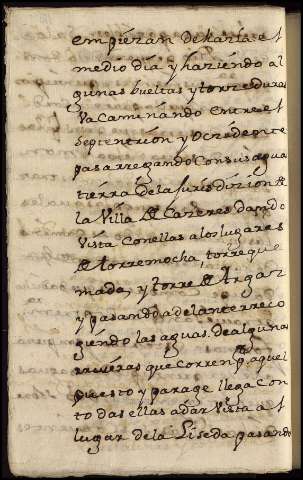 empieran de haria el
medio dia y haziendo al
gunas bueltas y torzeduras
va caminando entre el
Septentrion y Ocçedente
pasa rregando con sus agua
tierra de la Jurisdizion de
la Villa de Cazeres dando
Vista con ellas a los lugares
de torremocha, torre que
mada, y torre de Orgaz
y pasando adelante rreco
giendo las aguas de algunas
rraueras que corren por aquel
puesto y parage llega con
todas ellas a dar Vista a el
lugar de la Liseda pasando